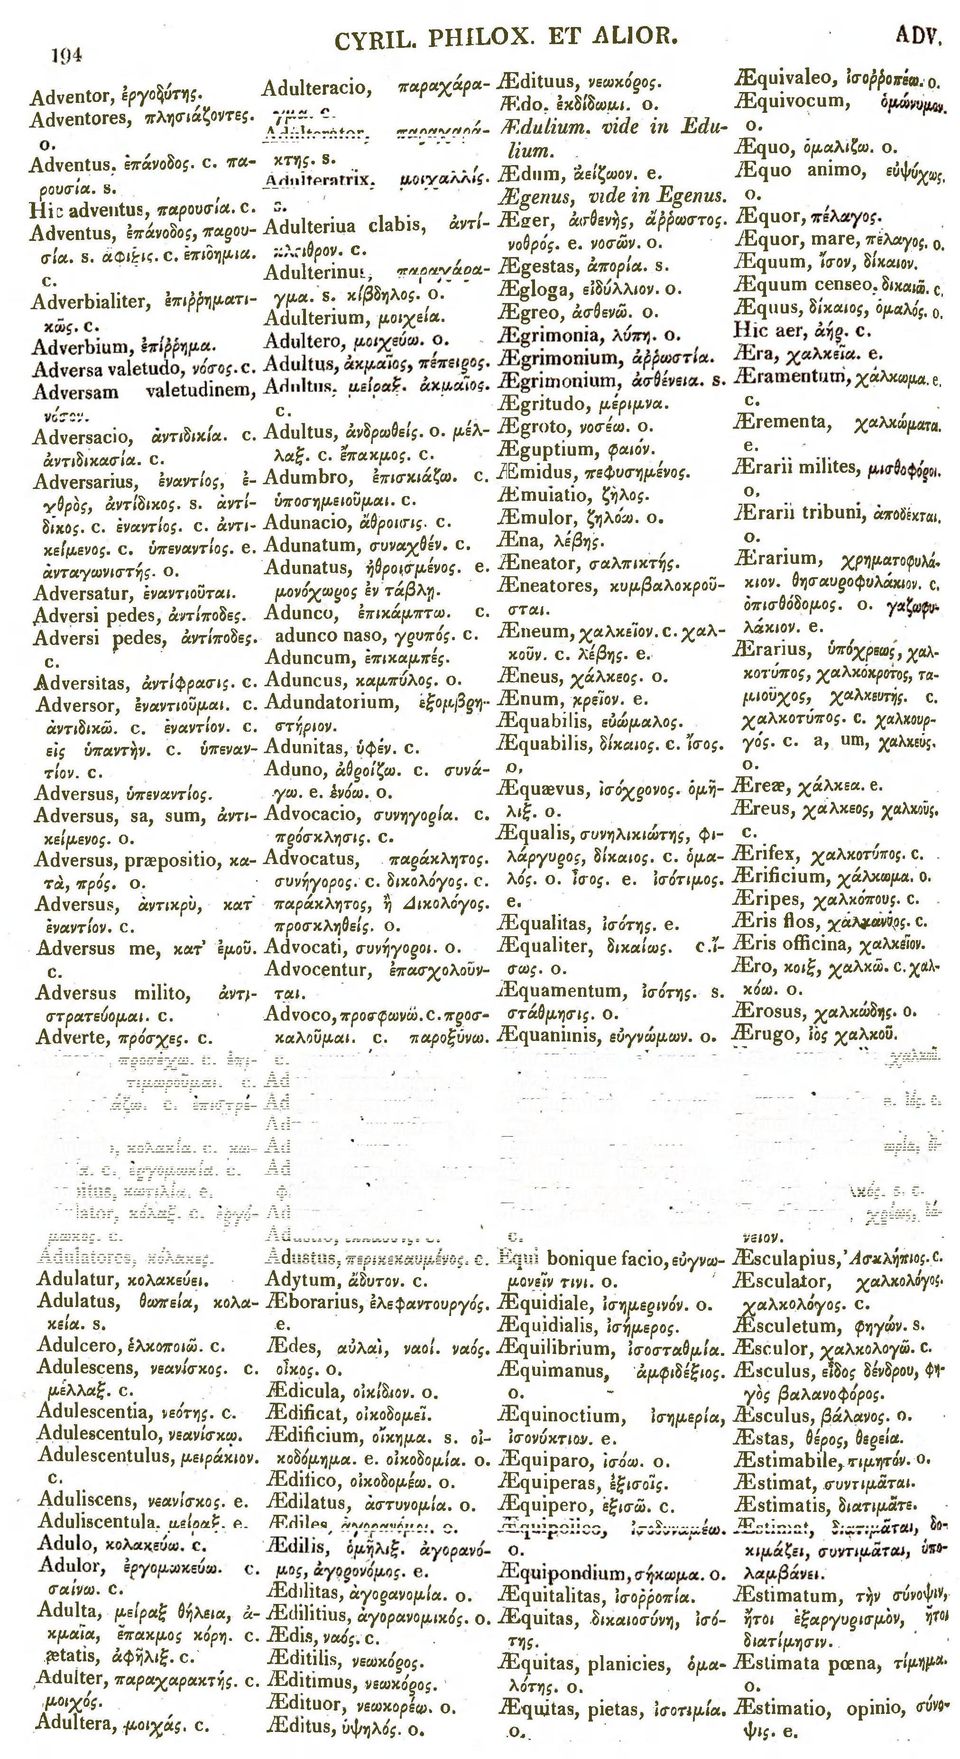 194
CYRIL. PHILOX. ET ALIOR.
ADV.
Adventor, ἐργοδύτης.
Adventores, πλησιάζοντες.
o.
Adventus, ἐπάνοδος. c. πα-
ρουσία. s.
Hic adventus, παρουσία. c.
Adventus, ἐπάνοδος, παρου-
σία. s. ἄφιξις. c. ἐπιδημία.
c.
Adverbialiter, ἐπιῤῥηματι-
κῶς. c.
Adverbium, ἐπίῤῥημα.
Adversa valetudo, νόσος. c.
Adversam valetudinem,
νόσον.
Adversacio, ἀντιδικία. c.
ἀντιδικασία. c.
Adversarius, ἐναντίος, ἐ-
χθρὸς, ἀντίδικος. s. ἀντί-
δικος. c. ἐναντίος. c. ἀντι-
κείμενος. c. ὑπεναντίος. e.
ἀνταγωνιστής. o.
Adversatur, ἐναντιοῦται.
Adversi pedes, ἀντίποδες.
Adversi pedes, ἀντίποδες.
c.
Adversitas, ἀντίφρασις. c.
Adversor, ἐναντιοῦμαι. c.
ἀντιδικῶ. c. ἐναντίον. c.
εἰς ὑπαντήν. c. ὑπεναν-
τίον. c.
Adversus, ὑπεναντίος.
Adversus, sa, sum, ἀντι-
κείμενος. o.
Adversus, præpositio, κα-
τὰ, πρός. o.
Adversus, ἀντικρὺ, κατ'
ἐναντίον. c.
Adversus me, κατ' ἐμοῦ.
c.
Adversus milito, ἀντι-
στρατεύομαι. c.
Adverte, πρόσχες. c.
προσέχω. c. ἐπι-
τιμωροῦμαι. c.
c. ἐπιστρέ-
κολακία. c. κω-
c. ἐργομωκία. c.
κωτιλία. e.
κόλαξ. c. ἐργό-
μωκος. c.
Adulatores, κόλακες.
Adulatur, κολακεύει.
Adulatus, θωπεία, κολα-
κεία. s.
Adulcero, ἑλκοποιῶ. c.
Adulescens, νεανίσκος. c.
μέλλαξ. c.
Adulescentia, νεότης. c.
Adulescentulo, νεανίσκῳ.
Adulescentulus, μειράκιον.
c.
Aduliscens, νεανίσκος. e.
Aduliscentula, μείραξ. e.
Adulo, κολακεύω. c.
Adulor, ἐργομωκεύω. c.
σαίνω. c.
Adulta, μείραξ θήλεια, ἀ-
κμαῖα, ἔπακμος κόρη. c.
ætatis, ἀφῆλιξ. c.
Adulter, παραχαρακτής. c.
μοιχός.
Adultera, μοιχάς. c.
Adulteracio, παραχάρα-
γμα. c.
Adulterator, παραχαρά-
κτης. s.
Adulteratrix, μοιχαλλίς.
s.
Adulteriua clabis, ἀντί-
κλειθρον. c.
Adulterinus, παραχάρα-
γμα. s. κίβδηλος. o.
Adulterium, μοιχεία.
Adultero, μοιχεύω. o.
Adultus, ἀκμαῖος, πέπειρος.
Adultus, μείραξ. ἀκμαῖος.
c.
Adultus, ἀνδρωθείς. o. μέλ-
λαξ. c. ἔπακμος. c.
Adumbro, ἐπισκιάζω. c.
ὑποσημειοῦμαι. c.
Adunacio, ἄθροισις. c.
Adunatum, συναχθέν. c.
Adunatus, ἠθροισμένος. e.
μονόχωρος ἐν τάβλῃ.
Adunco, ἐπικάμπτω. c.
adunco naso, γρυπός. c.
Aduncum, ἐπικαμπές.
Aduncus, καμπύλος. o.
Adundatorium, ἐξομβρη-
στήριον.
Adunitas, ὑφέν. c.
Aduno, ἀθροίζω. c. συνά-
γω. e. ἑνόω. o.
Advocacio, συνηγορία. c.
πρόσκλησις. c.
Advocatus, παράκλητος.
συνήγορος. c. δικολόγος. c.
παράκλητος, ἢ Δικολόγος.
προσκληθείς. o.
Advocati, συνήγοροι. o.
Advocentur, ἐπασχολοῦν-
ται.
Advoco, προσφωνῶ. c. προσ-
καλοῦμαι. c. παροξύνω.
c.
Ad
Ad
Ad
Ad
Ad
Adustus, περικεκαυμένος. c.
Adytum, ἄδυτον. c.
Æborarius, ἐλεφαντουργός.
e.
Ædes, αὐλαὶ, ναοί. ναός.
οἶκος. o.
Ædicula, οἰκίδιον. o.
Ædificat, οἰκοδομεῖ.
Ædificium, οἴκημα. s. οἰ-
κοδόμημα. e. οἰκοδομία. o.
Ædifico, οἰκοδομέω. o.
Ædilatus, ἀστυνομία. o.
Ædiles, ἀγορανόμοι. o.
Ædilis, ὁμῆλιξ. ἀγορανό-
μος, ἀγορονόμος. e.
Ædilitas, ἀγορανομία. o.
Ædilitius, ἀγορανομικός. o.
Ædis, ναός. c.
Æditilis, νεωκόρος.
Æditimus, νεωκόρος.
Ædituor, νεωκορέω. o.
Æditus, ὑψηλός. o.
Ædituus, νεωκόρος.
Ædo, ἐκδίδωμι. o.
Ædulium. vide in Edu-
lium.
Ædum, ἀείζωον. e.
Ægenus, vide in Egenus.
Æger, ἀσθενὴς, ἄῤῥωστος.
νοθρός. e. νοσῶν. o.
Ægestas, ἀπορία. s.
Ægloga, εἰδύλλιον. o.
Ægreo, ἀσθενῶ. o.
Ægrimonia, λύπη. o.
Ægrimonium, ἀῤῥωστία.
Ægrimonium, ἀσθένεια. s.
Ægritudo, μέριμνα.
Ægroto, νοσέω. o.
Æguptium, φαιόν.
Æmidus, πεφυσημένος.
Æmulatio, ζῆλος.
Æmulor, ζηλόω. o.
Æna, λέβης.
Æneator, σαλπικτής.
Æneatores, κυμβαλοκροῦ-
σται.
Æneum, χαλκεῖον. c. χαλ-
κοῦν. c. λέβης. e.
Æneus, χάλκεος. o.
Ænum, κρεῖον. e.
Æquabilis, εὐώμαλος.
Æquabilis, δίκαιος. c. ἴσος.
o.
Æquævus, ἰσόχρονος. ὁμῆ-
λιξ. o.
Æqualis, συνηλικιώτης, φι-
λάργυρος, δίκαιος. c. ὁμα-
λός. o. ἴσος. e. ἰσότιμος.
e.
Æqualitas, ἰσότης. e.
Æqualiter, δικαίως. c. ἴ-
σως. o.
Æquamentum, ἰσότης. s.
στάθμησις. o.
Æquanimis, εὐγνώμων. o.
c.
Equi bonique facio, εὐγνω-
μονεῖν τινι. o.
Æquidiale, ἰσημερινόν. o.
Æquidialis, ἰσήμερος.
Æquilibrium, ἰσοσταθμία.
Æquimanus, ἀμφιδέξιος.
o.
Æquinoctium, ἰσημερία,
ἰσονύκτιον. e.
Æquiparo, ἰσόω. o.
Æquiperas, ἐξισοῖς.
Æquipero, ἐξισῶ. c.
Æquipolleo, ἰσοδυναμέω.
o.
Æquipondium, σήκωμα. o.
Æquitalitas, ἰσοῤῥοπία.
Æquitas, δικαιοσύνη, ἰσό-
της.
Æquitas, planicies, ὁμα-
λότης. o.
Æquitas, pietas, ἰσοτιμία.
o.
Æquivaleo, ἰσοῤῥοπέω. o.
Æquivocum, ὁμώνυμον.
o.
Æquo, ὁμαλίζω. o.
Æquo animo, εὐψύχως.
o.
Æquor, πέλαγος.
Æquor, mare, πέλαγος. o.
Æquum, ἴσον, δίκαιον.
Æquum censeo, δικαιῶ. c.
Æquus, δίκαιος, ὁμαλός. o.
Hic aer, ἀήρ. c.
Æra, χαλκεῖα. e.
Æramentum, χάλκωμα. e.
c.
Æramenta, χαλκώματα.
e.
Ærarii milites, μισθοφόροι.
o.
Ærarii tribuni, ἀποδέκται.
o.
Ærarium, χρηματοφυλά-
κιον. θησαυροφυλάκιον. c.
ὀπισθόδομος. o. γαζωφυ-
λάκιον. e.
Ærarius, ὑπόχρεως, χαλ-
κοτύπος, χαλκόκροτος, τα-
μιοῦχος, χαλκευτής. c.
χαλκοτύπος. c. χαλκουρ-
γός. c. a, um, χαλκεύς.
o.
Æreæ, χάλκεα. e.
Æreus, χάλκεος, χαλκοῦς.
c.
Ærifex, χαλκοτύπος. c.
Ærificium, χάλκωμα. o.
Æripes, χαλκόπους. c.
Æris flos, χάλκανθος. c.
Æris officina, χαλκεῖον.
Æro, κοιξ, χαλκῶ. c. χαλ-
κόω. o.
Ærosus, χαλκώδης. o.
Ærugo, ἰὸς χαλκοῦ.
νειον.
Æsculapius, Ἀσκλήπιος. c.
Æsculator, χαλκολόγος.
χαλκολόγος. c.
Æsculetum, φηγών. s.
Æsculor, χαλκολογῶ. c.
Æsculus, εἶδος δένδρου, φη-
γὸς βαλανοφόρος.
Æsculus, βάλανος. o.
Æstas, θέρος, θερεία.
Æstimabile, τιμητόν. o.
Æstimat, συντιμᾶται.
Æstimatis, διατιμᾶτε.
Æstimat, διατιμᾶται, δο-
κιμάζει, συντιμᾶται, ὑπο-
λαμβάνει.
Æstimatum, τὴν σύνοψιν,
ἤτοι ἐξαργυρισμὸν, ἤτοι
διατίμησιν.
Æstimata pœna, τίμημα.
o.
Æstimatio, opinio, σύνο-
ψις. e.